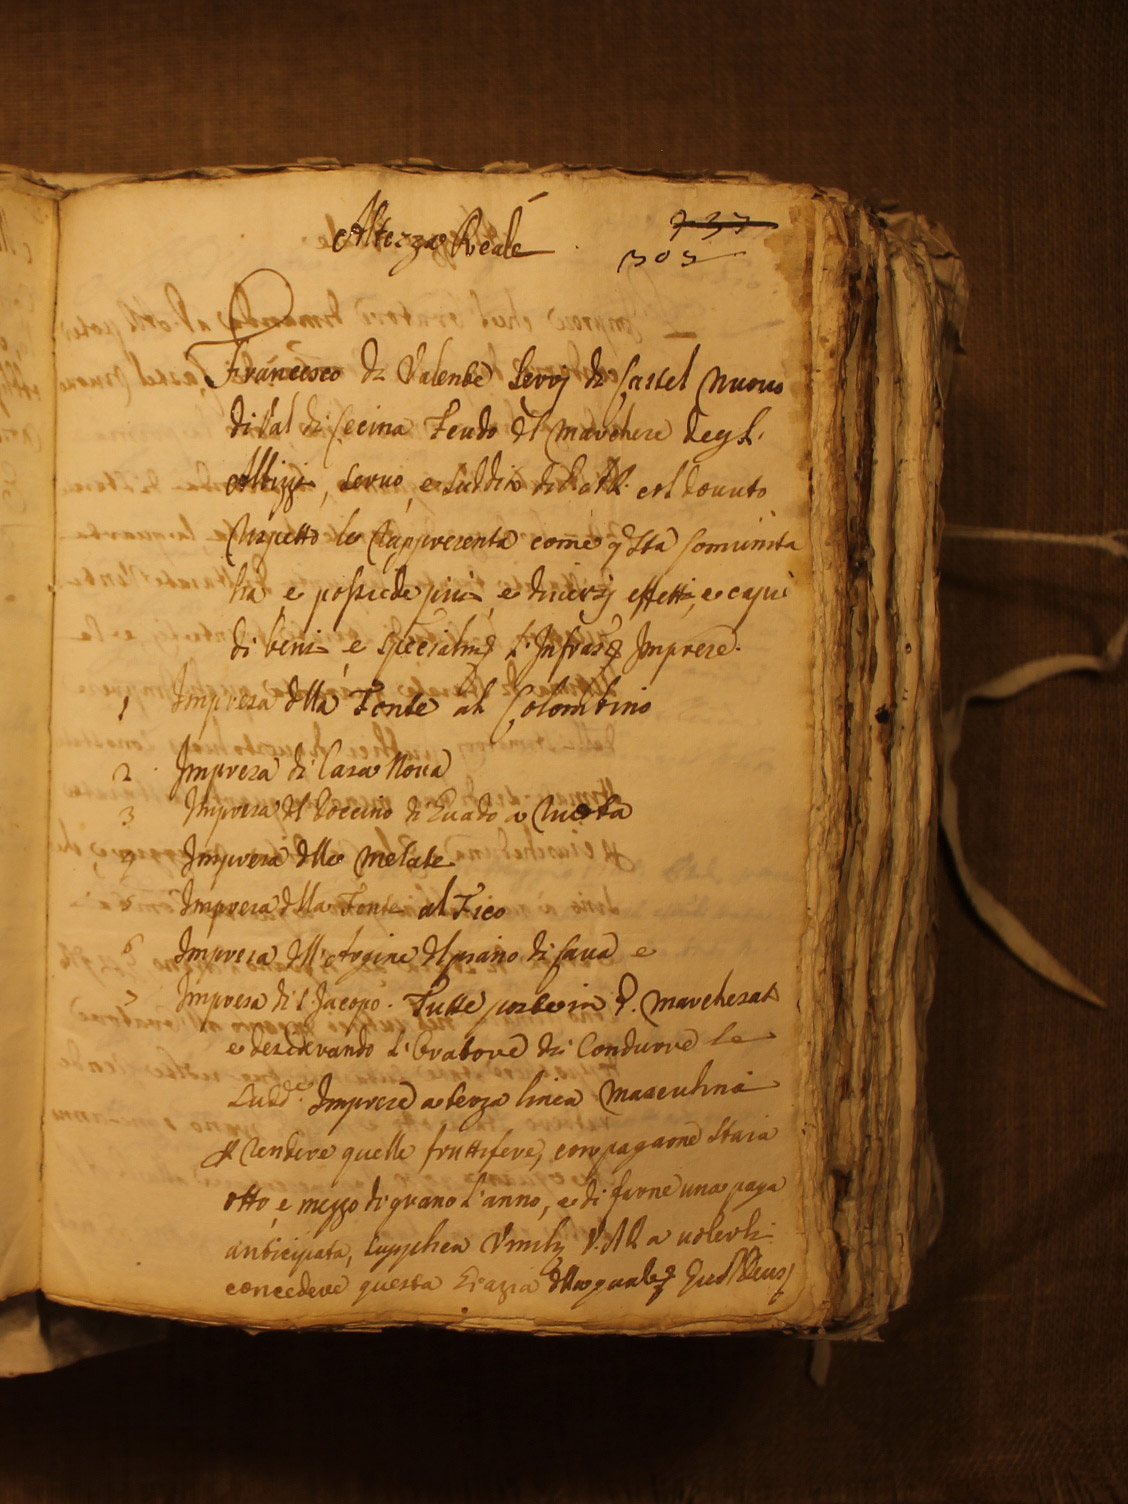 Altezza Reale
737
303
Francesco di Valente Serri di Castel Nuovo
di Val di Cecina Feudo del Marchese degl'
Albizzi, servo, e suddito di V. A. R. col dovuto
Rispetto le Rappresenta come qsta Comunita
ha, e possiede piu, e diversi effetti, e capi
di beni, e spezialm l'Infras Imprese.
1 Impresa dlla Fonte al Colombino
2 Impresa di Casa Nova
3 Impresa dl Poccino di Guado a
4 Impresa dlle Melate
5 Impresa dlla Fonte al Fico
6 Impresa dll'Argine dl piano di Cava e
7 Impresa di S. Jacopo. Tutte poste in d. Marchesat
e desiderando l'Oratore di Condurre le
Sudd.e Imprese a terza linea masculina
p Rendere quelle fruttifere, con pagarne staia
otto, e mezzo di grano l'anno, e di farne una paga
anticipata, supplica Vmilm V. A. R. a volerli
concedere questa Grazia dlla quale Quam Deus